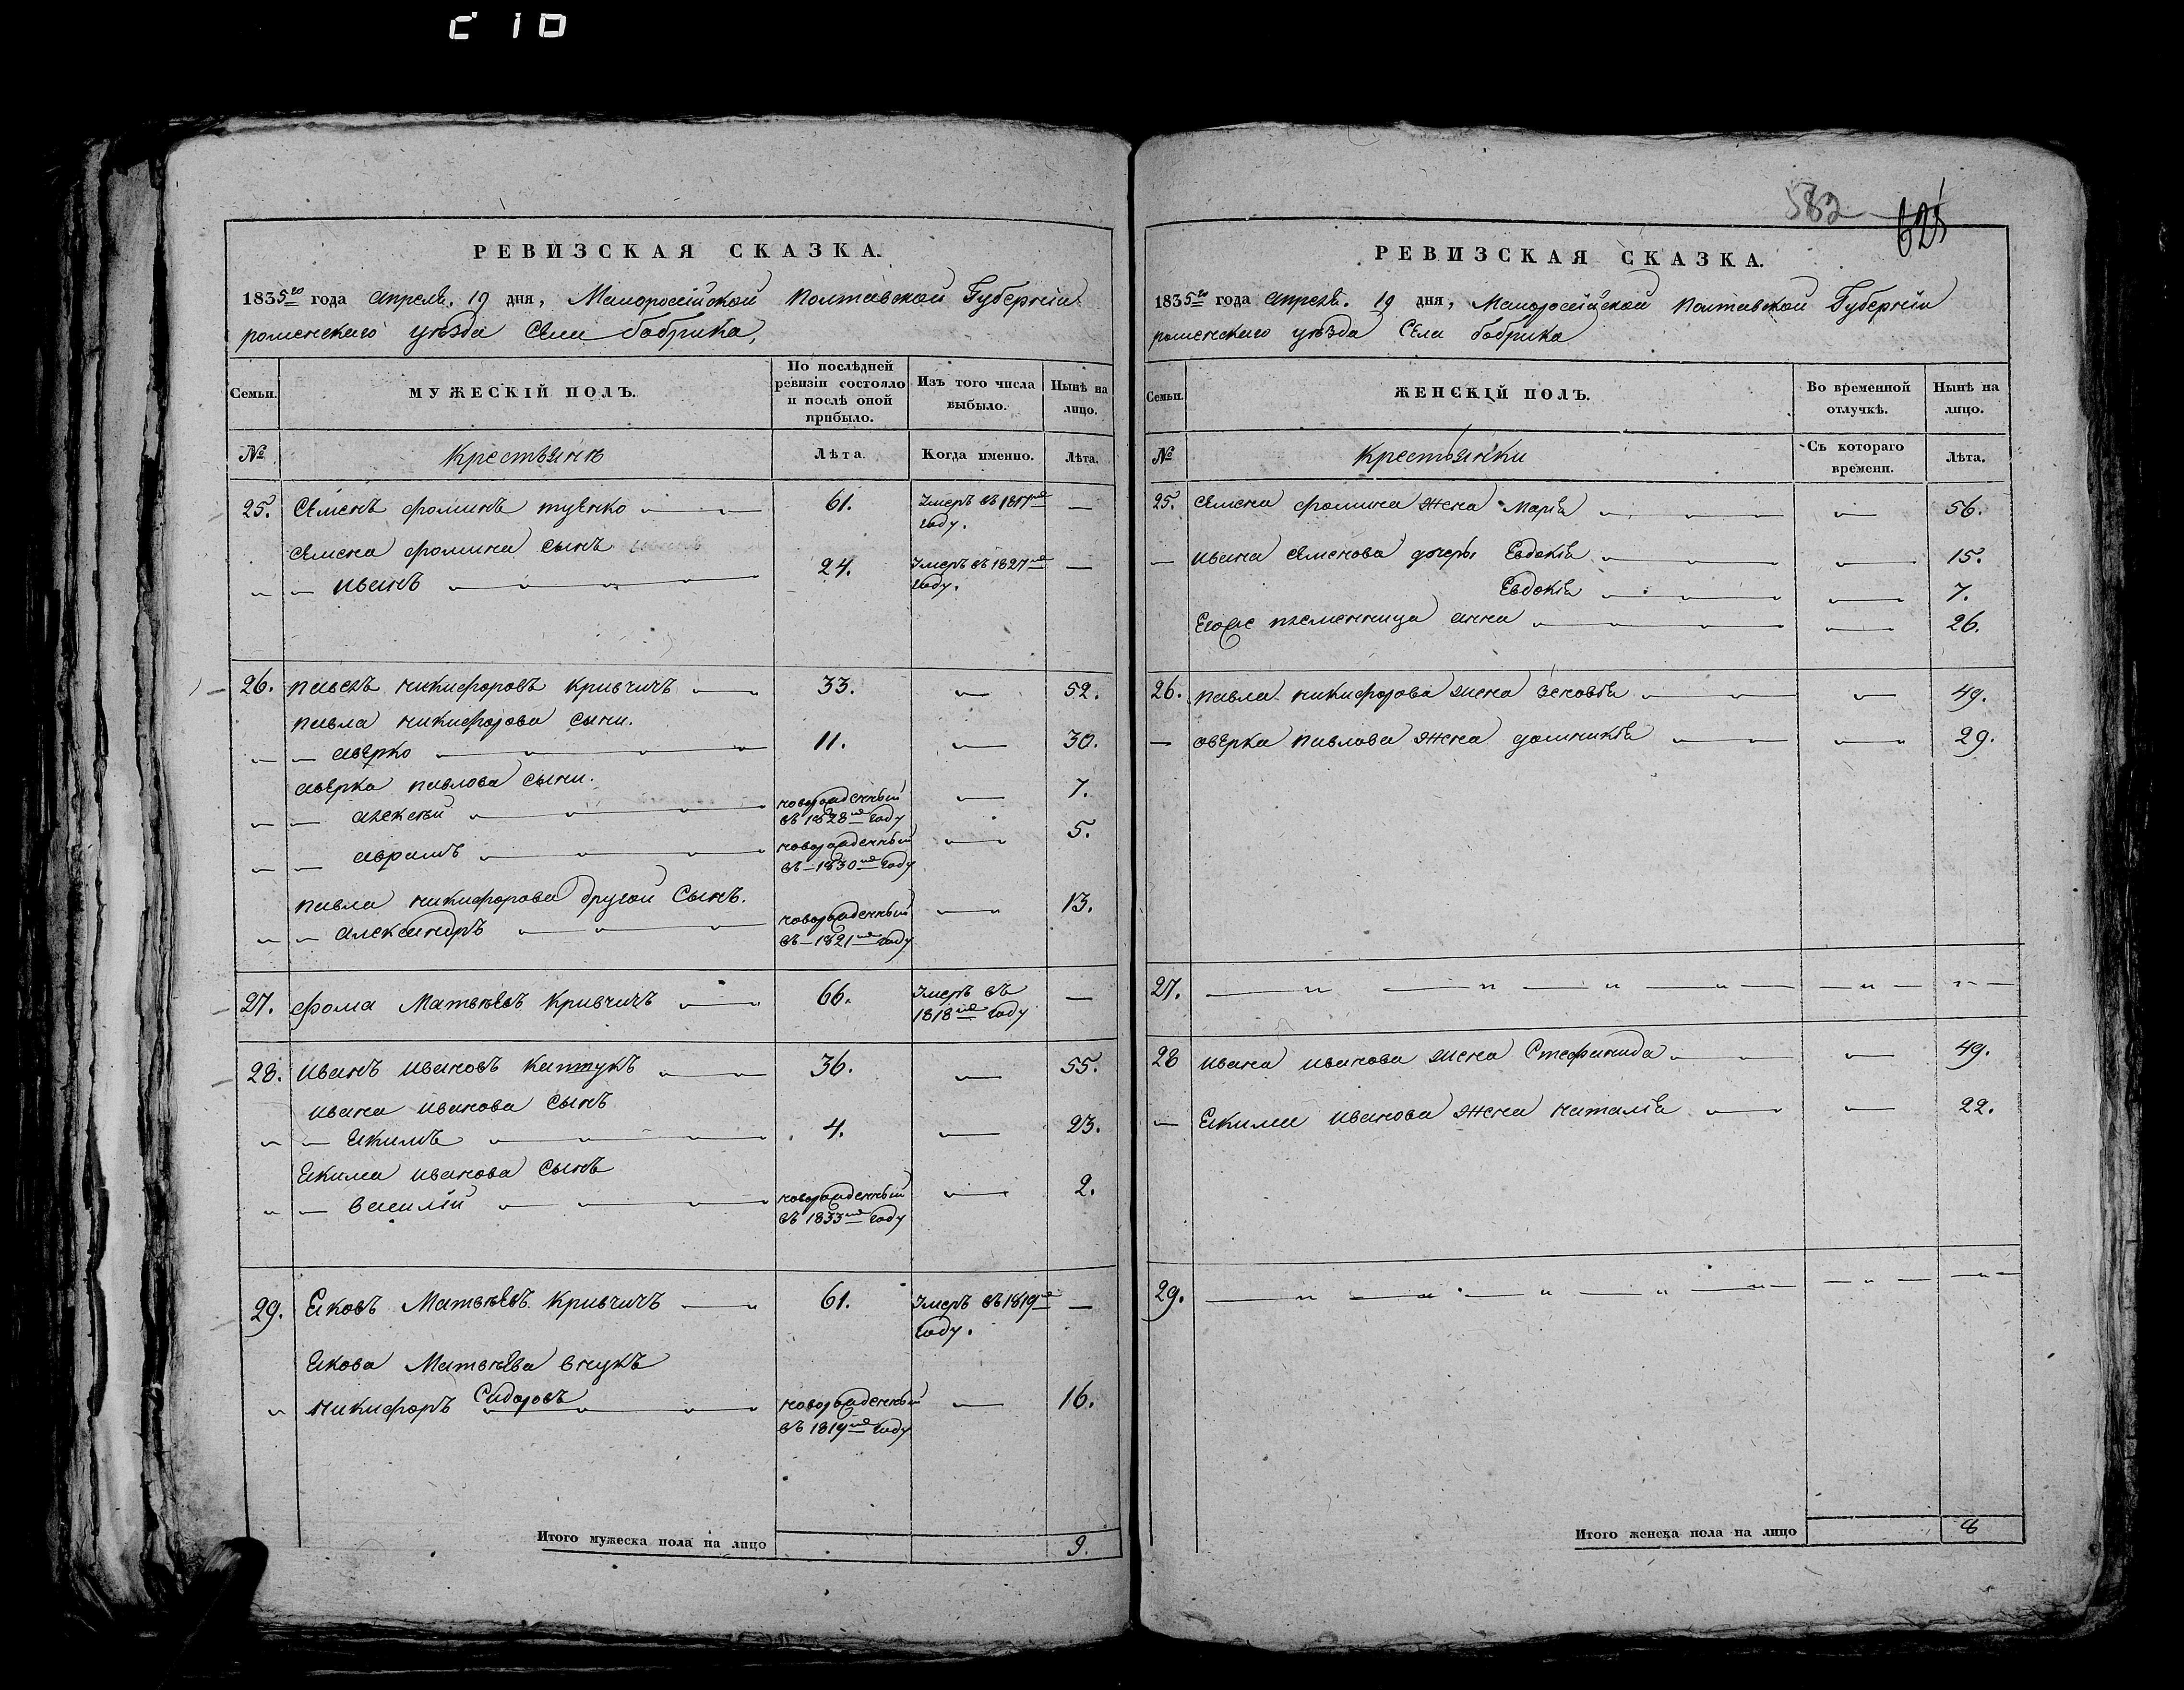 С 10
582
625
РЕВИЗСКАЯ СКАЗКА.
1835го года апреля. 19 дня, Малоросейской Полтавской Губернiи
роменскаго уѣзда Села бобрика,
Семьи.
МУЖЕСКIЙ ПОЛЪ.
По послѣдней ревизiи состояло и послѣ оной прибыло.
Изъ того числа выбыло.
Нынѣ на лицо.
№
Крестьянѣ
Лѣта.
Когда именно.
Лѣта.
25. Семенъ фоминъ туенко 61. Умеръ въ 1817мъ году. —
Семена фомина сынъ
" — иванъ 24. Умеръ въ 1827мъ году. —
26. павелъ никифоровъ кривчичъ 33. — 52.
павла никифорова сыни.
" — аверко 11. — 30.
аверка павлова сыни.
" — алексѣй новорожденный въ 1828мъ году — 7.
" — аврамъ новорожденный въ — 1830мъ году — 5.
павла никифорова другой Сынъ.
" — александръ новорожденный въ — 1821мъ году — 13.
27. фома Матвѣевъ Кривчичъ 66. Умеръ въ 1818мъ году —
28. иванъ ивановъ каптукъ 36. — 55.
ивана иванова сынъ
" — Екимъ 4. — 23.
Екима иванова Сынъ
" — василiй новорожденный въ 1833мъ году — 2.
29. Ековъ Матвѣевъ Кривчичъ 61. Умеръ въ 1819мъ году. —
Екова Матвѣева внукъ
" никифоръ Сидоровъ новорожденный въ 1819мъ году — 16.
Итого мужеска пола на лицо 9.
РЕВИЗСКАЯ СКАЗКА.
1835го года апреля. 19 дня, Малоросейской Полтавской Губернiи
роменскаго уѣзда Села бобрика
Семьи.
ЖЕНСКIЙ ПОЛЪ.
Во временной отлучкѣ.
Нынѣ на лицо.
№
Крестьянки
Съ котораго времени.
Лѣта.
25. Семена фомина жена марiя — 56.
— ивана семенова дочеры Евдокiя — 15.
Евдокiя — 7.
Егоже племенница анна — 26.
26. павла никифорова жена зеновiя — 49.
— оверка павлова жена домникiя — 29.
27. — " — " — " — " —
28 ивана иванова жена Стефанида — 49.
— Екима иванова жена наталiя — 22.
29. — " — " — " — " —
Итого женска пола на лицо 8